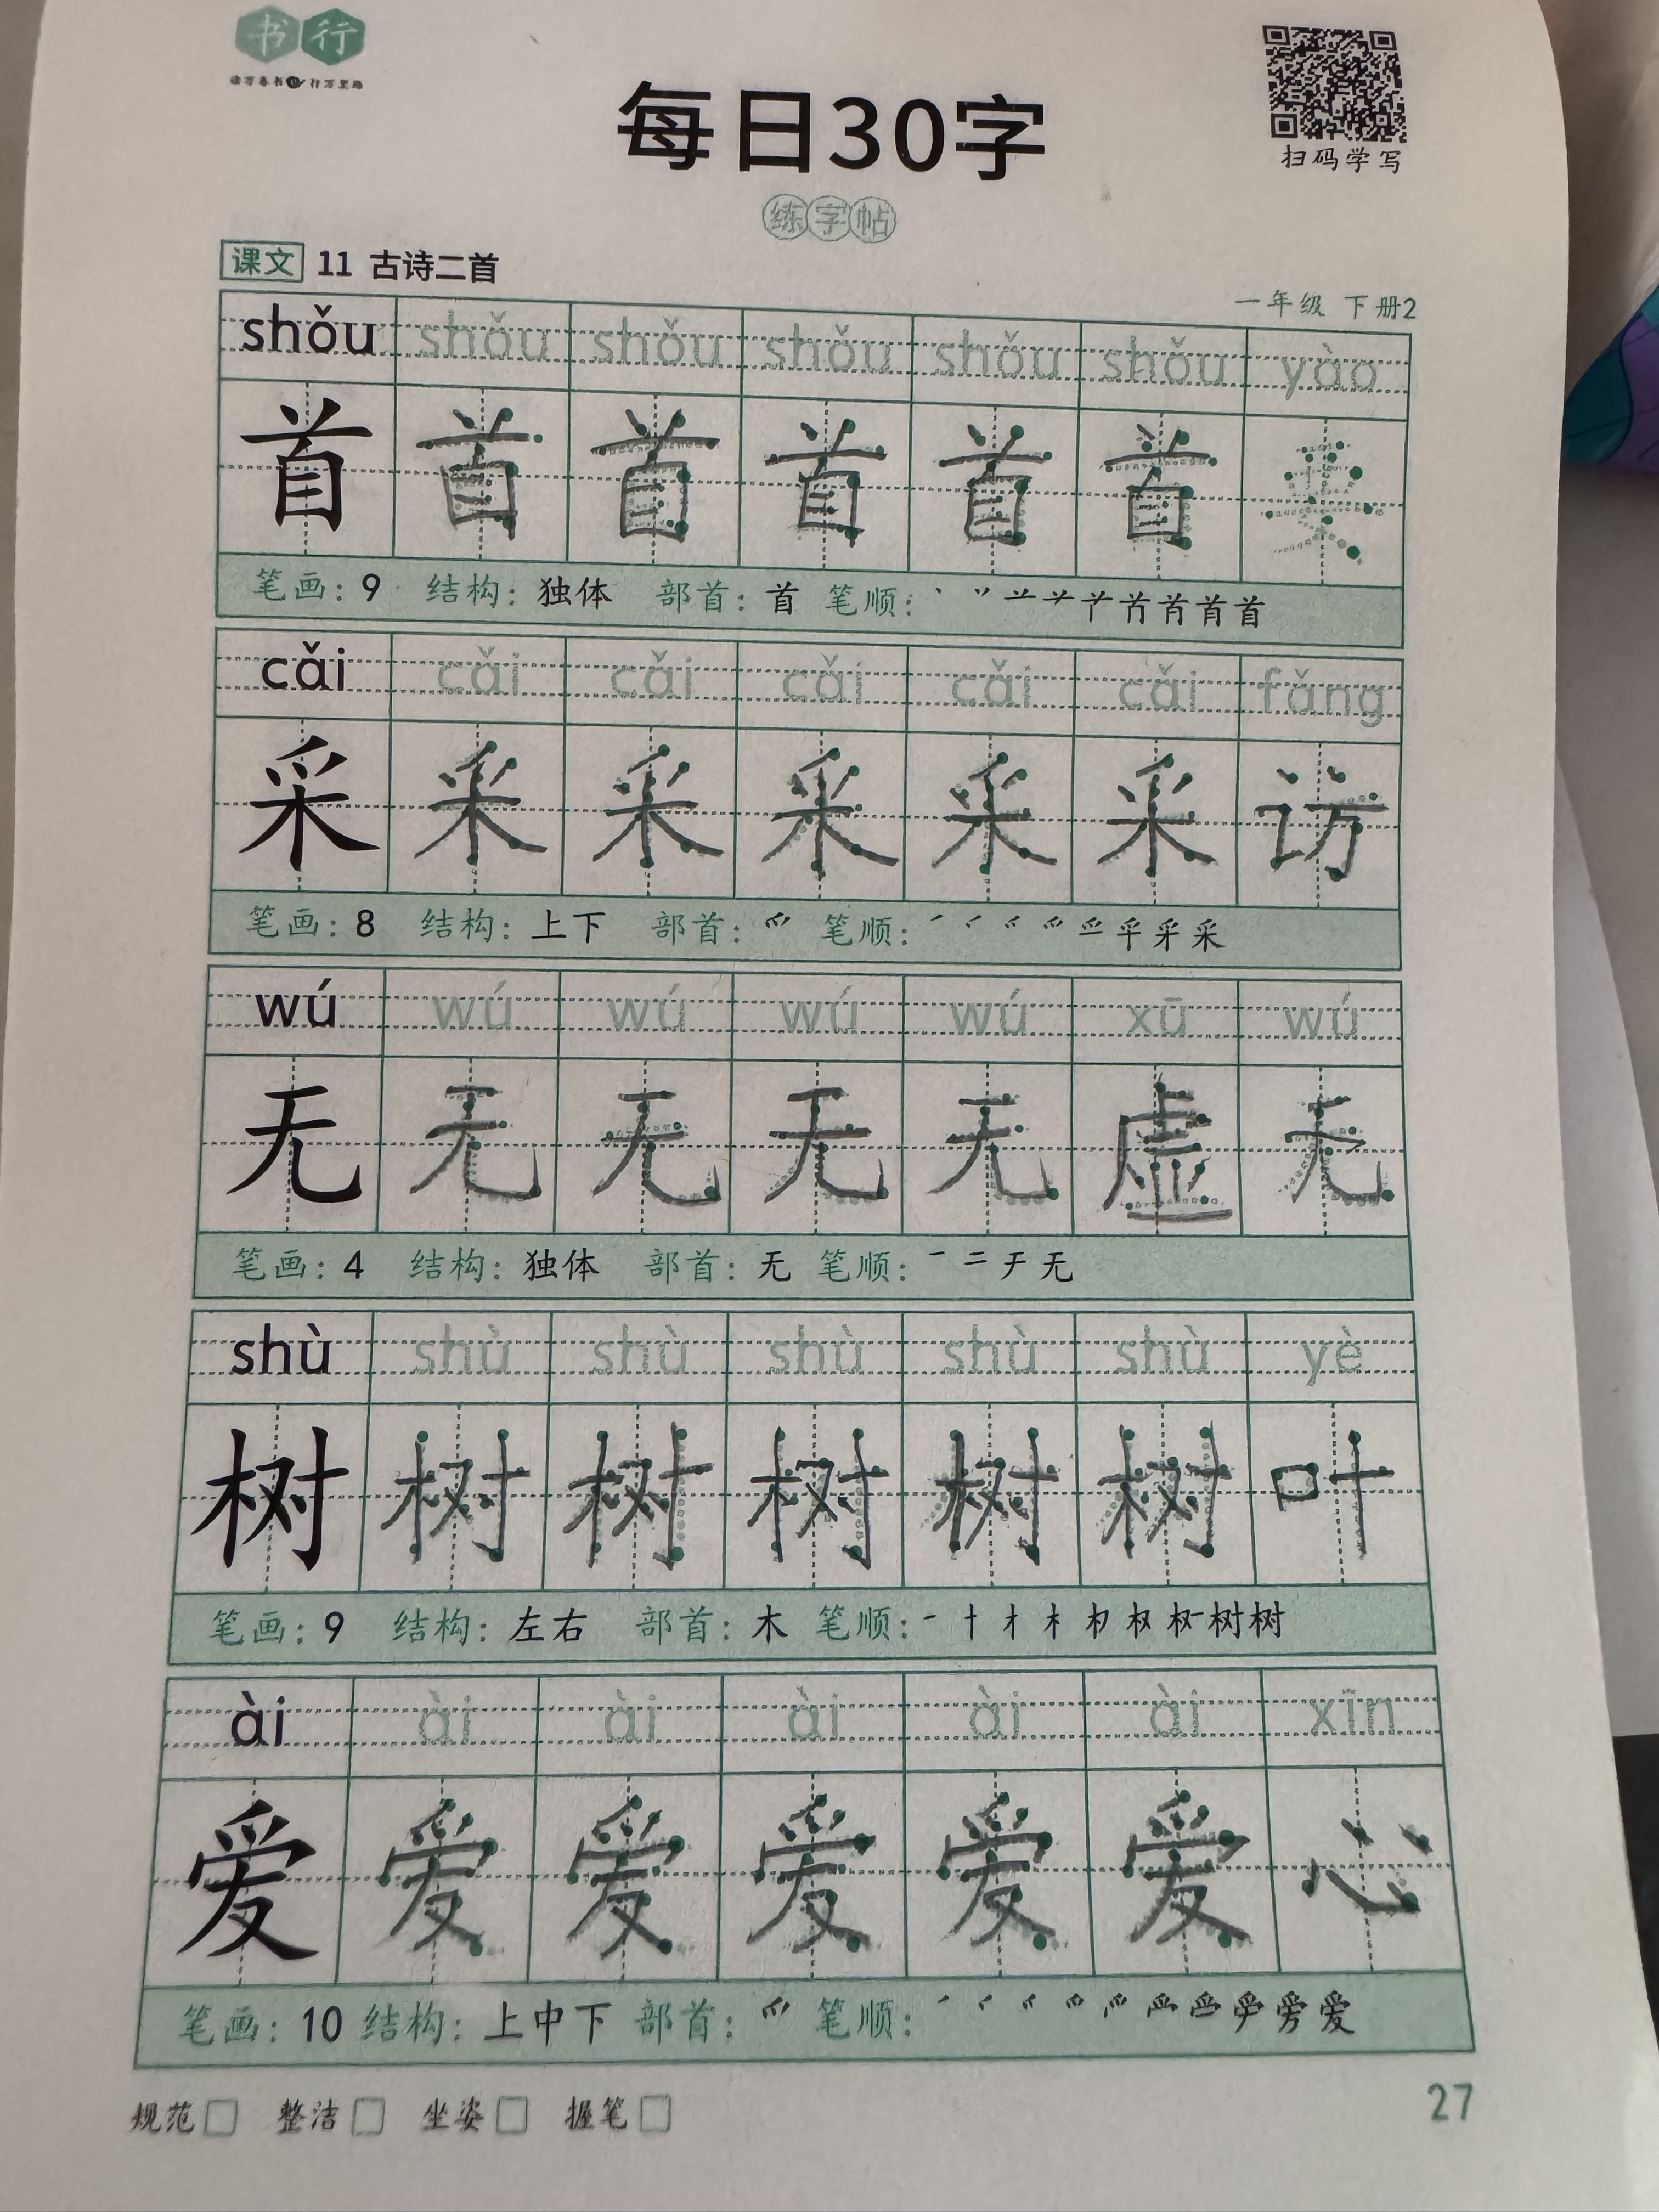 书行
读万卷书 行万里路
扫码学写
每日30字
练字帖
课文 11 古诗二首
一年级 下册2
shǒu shǒu shǒu shǒu shǒu shǒu yào
首 首 首 首 首 首
笔画：9 结构：独体 部首：首 笔顺：
cǎi cǎi cǎi cǎi cǎi cǎi fǎng
采 采 采 采 采 采 访
笔画：8 结构：上下 部首：爫 笔顺：
wú wú wú wú wú xū wú
无 无 无 无 无 虚 无
笔画：4 结构：独体 部首：无 笔顺：一 二 于 无
shù shù shù shù shù shù yè
树 树 树 树 树 树 叶
笔画：9 结构：左右 部首：木 笔顺：
ài ài ài ài ài ài xīn
爱 爱 爱 爱 爱 爱 心
笔画：10 结构：上中下 部首：爫 笔顺：
规范□ 整洁□ 坐姿□ 握笔□
27